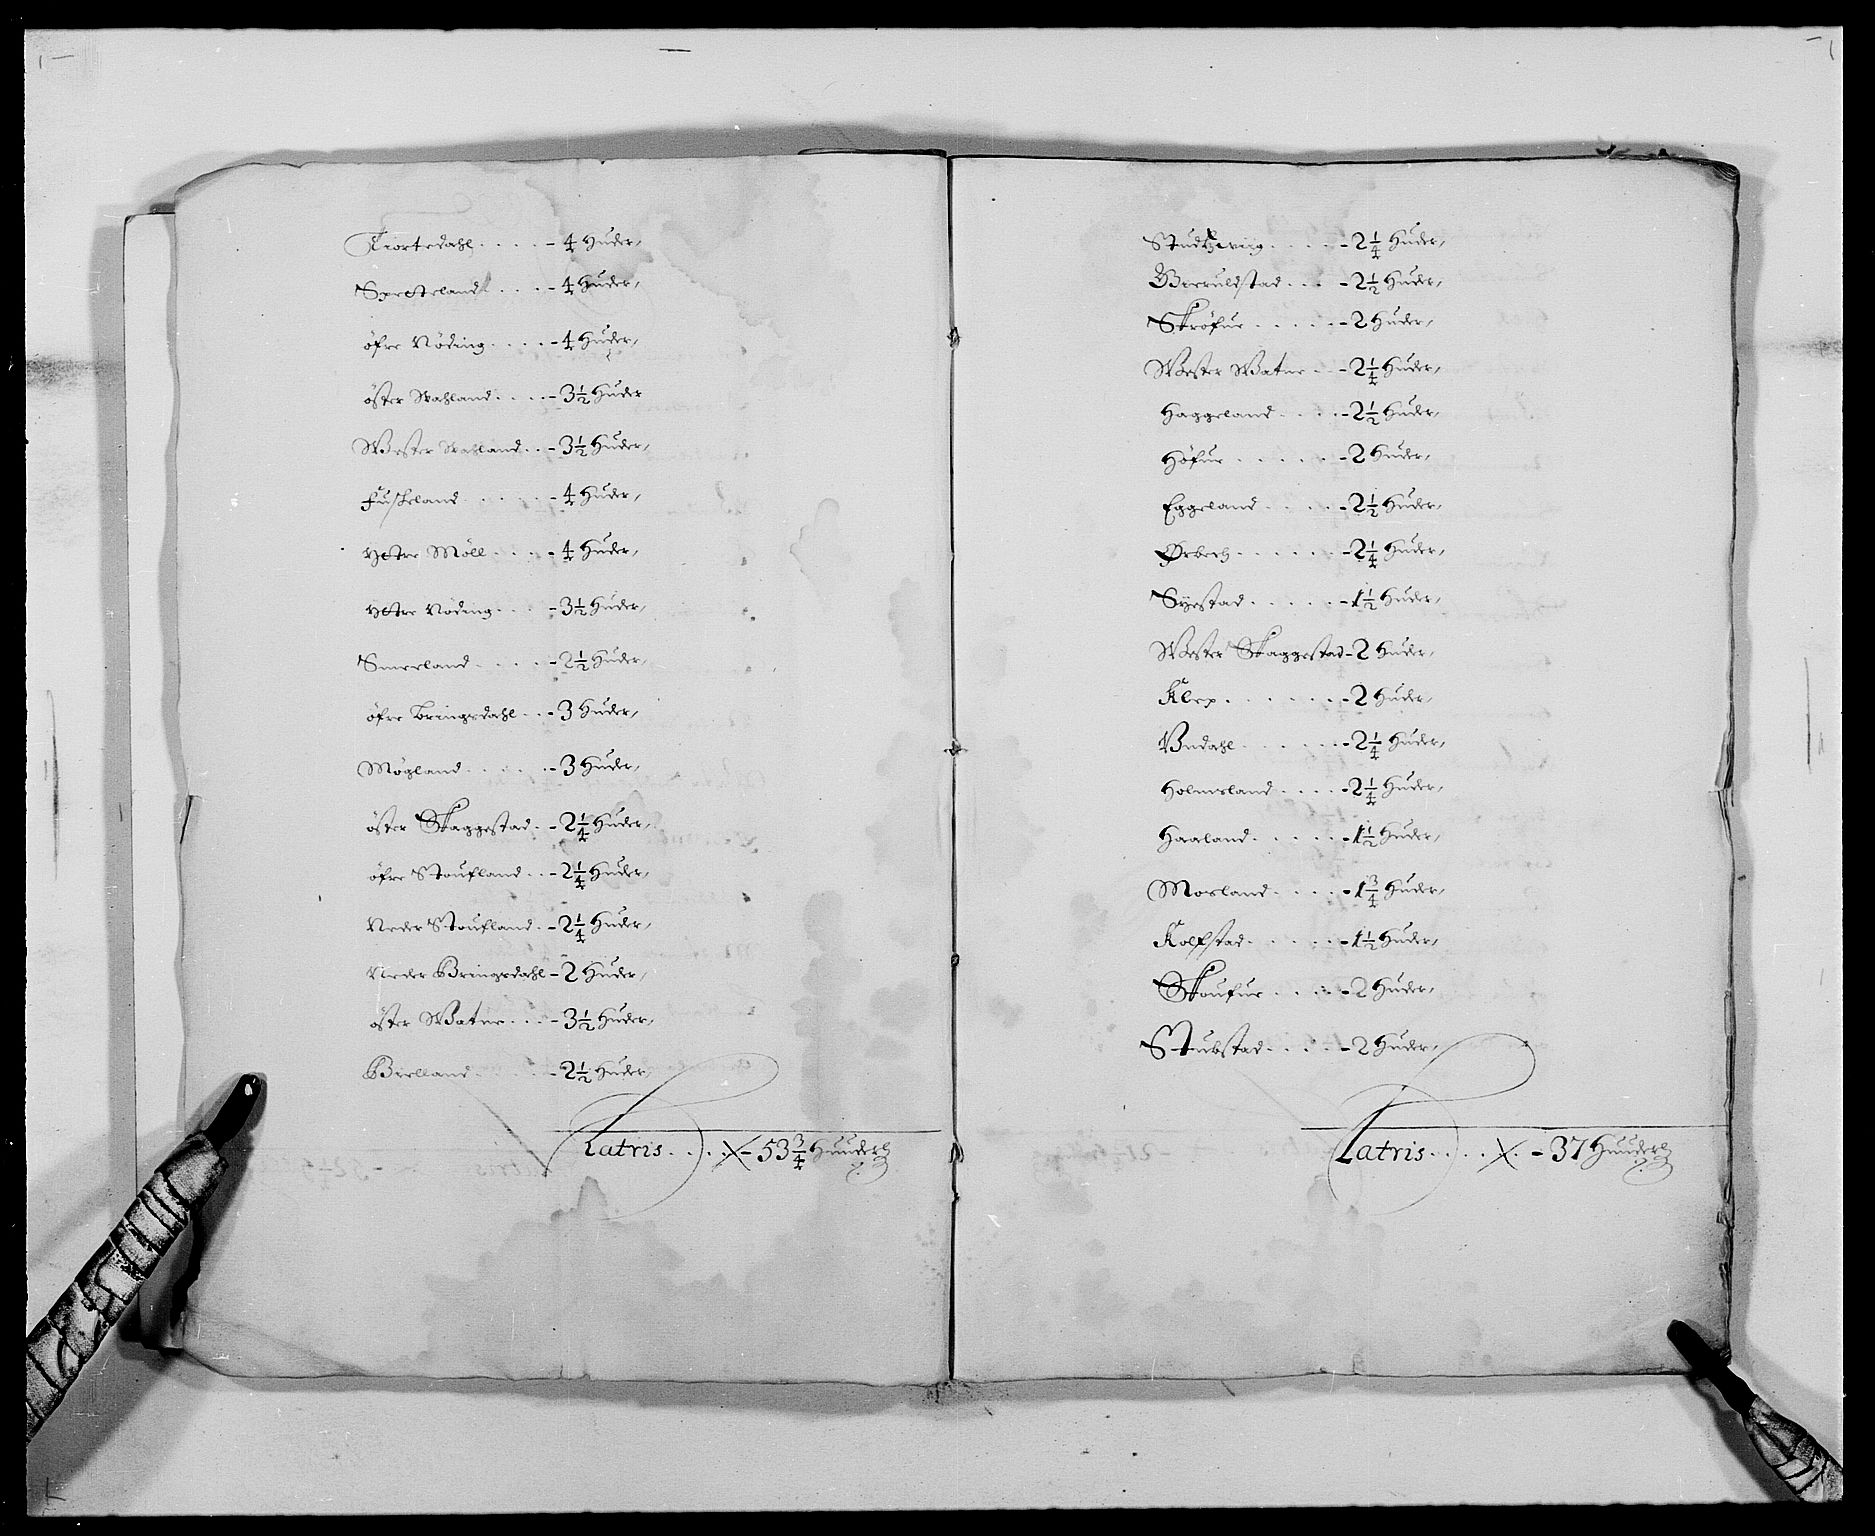 Tiortedahl . . . . - 4 Huder,
Spetteland . . . - 4 Huder,
öfre Nöding . . . . - 4 Huder,
öster Wahland . . . . - 3 1/2 Huder
Wester Wahland . . - 3 1/2 Huder,
Fuskeland . . . . . - 4 Huder,
Ytre Möll . . . . - 4 Huder,
Ytre Nöding . . . - 3 1/2 Huder,
Smerland . . . . - 2 1/2 Huder,
öfre Bringsdahl . . - 3 Huder,
Mögland . . . . . - 3 Huder,
öster Skaggestad . - 2 1/4 Huder,
öfre Stoufland . . - 2 1/4 Huder,
Neder Stoufland . - 2 1/4 Huder,
Neder Bringsdahl - 2 Huder,
öster Watne . . . - 3 1/2 Huder,
Bielland . . . . . - 2 1/2 Huder,
Latris . . . . - 53 3/4 Huuder
Studtzwiig . . . . - 2 1/4 Huder,
Bieruldstad . . . - 2 1/2 Huder,
Skröfue . . . . . - 2 Huder,
Wester Watne . . - 2 1/4 Huder,
Haggeland . . . . - 2 1/2 Huder,
Höfue . . . . . . - 2 Huder,
Eggeland . . . . . - 2 1/2 Huder,
Ørbech . . . . . . - 2 1/4 Huder,
Syestad . . . . . - 1 1/2 Huder,
Wester Skaggestad - 2 Huder,
Klep . . . . . . . - 2 Huder,
Undahl . . . . . . - 2 1/4 Huder,
Holmsland . . . . - 2 1/4 Huder,
Haaland . . . . . - 1 1/2 Huder,
Mosland . . . . . - 1 3/4 Huder,
Kolfstad . . . . . - 1 1/2 Huder,
Skoufue . . . . . - 2 Huder,
Stubstad . . . . . - 2 Huder,
Latris . . . . . - 37 Huuder